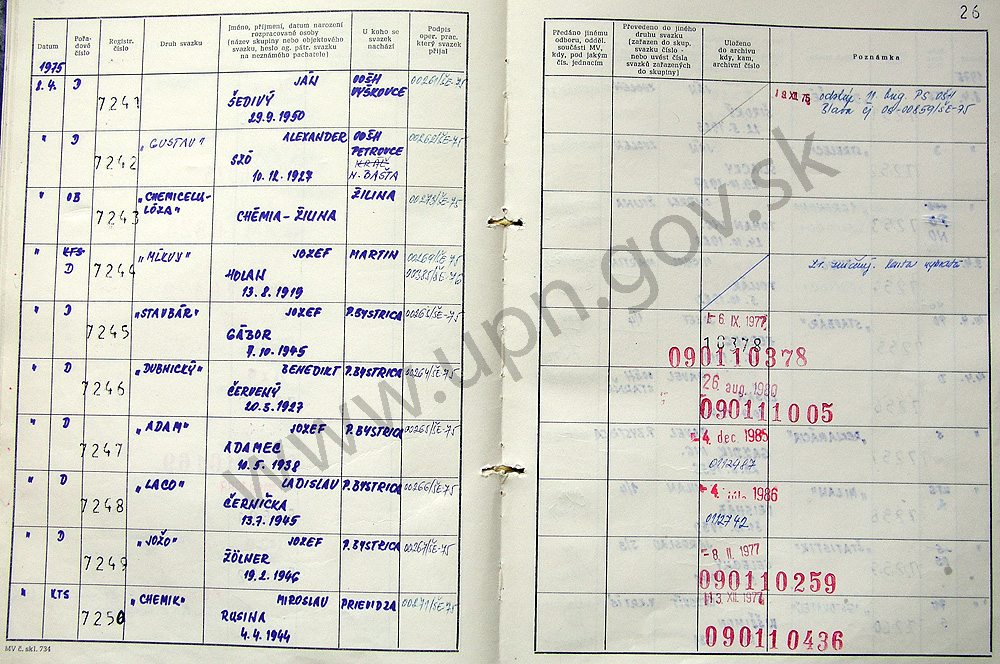 Datum
Pořadové číslo
Registr. číslo
Druh svazku
Jméno, příjmení, datum narození rozpracované osoby (název skupiny nebo objektového svazku, heslo ag. pátr. svazku na neznámého pachatele)
U koho se svazek nachází
Podpis oper. prac. který svazek přijal
1975
2.4. D 7241 JÁN OOŠH 00261/ŠE-75
ŠEDIVÝ VYŠKOVCE
29.9.1950
" D 7242 „GUSTAV" ALEXANDER OOŠH 00262/ŠE-75
SZÓ PETROVCE
10.12.1927 N. BAŠTA
" OB 7243 „CHEMICELU- ŽILINA 00273/ŠE-75
LÓZA" CHÉMIA-ŽILINA
" KTS D 7244 „MĹKVY" JOZEF MARTIN 00269/ŠE-75
HOLAN 00385/ŠE-76
13.8.1919
" D 7245 „STAVBÁR" JOZEF P.BYSTRICA 00263/ŠE-75
GÁBOR
7.10.1945
" D 7246 „DUBNICKÝ" BENEDIKT P.BYSTRICA 00264/ŠE-75
ČERVENÝ
20.3.1927
" D 7247 „ADAM" JOZEF P.BYSTRICA 00265/ŠE-75
ADAMEC
10.5.1938
" D 7248 „LACO" LADISLAV P.BYSTRICA 00266/ŠE-75
ČERNIČKA
13.7.1945
" D 7249 „JOŽO" JOZEF P.BYSTRICA 00267/ŠE-75
ŽÖLNER
19.2.1946
" KTS 7250 „CHEMIK" MIROSLAV PRIEVIDZA 00271/ŠE-75
RUSINA
4.4.1944
MV č. skl. 734
26
Předáno jinému odboru, odděl. součásti MV, kdy, pod jakým čís. jednacím
Převedeno do jiného druhu svazku (zařazen do skup. svazku číslo - nebo uvést čísla svazků zařazených do skupiny)
Uloženo do archivu kdy, kam, archivní číslo
Poznámka
19 XII. 75
Blava čj 08-00859/ŠE-75
- 6. IX. 1977
10378
090110378
26. aug. 1980
090111005
- 4. dec. 1985
0112487
1986
0112742
- 8. II. 1977
090110259
13. XII. 1977
090110436
www.upn.gov.sk